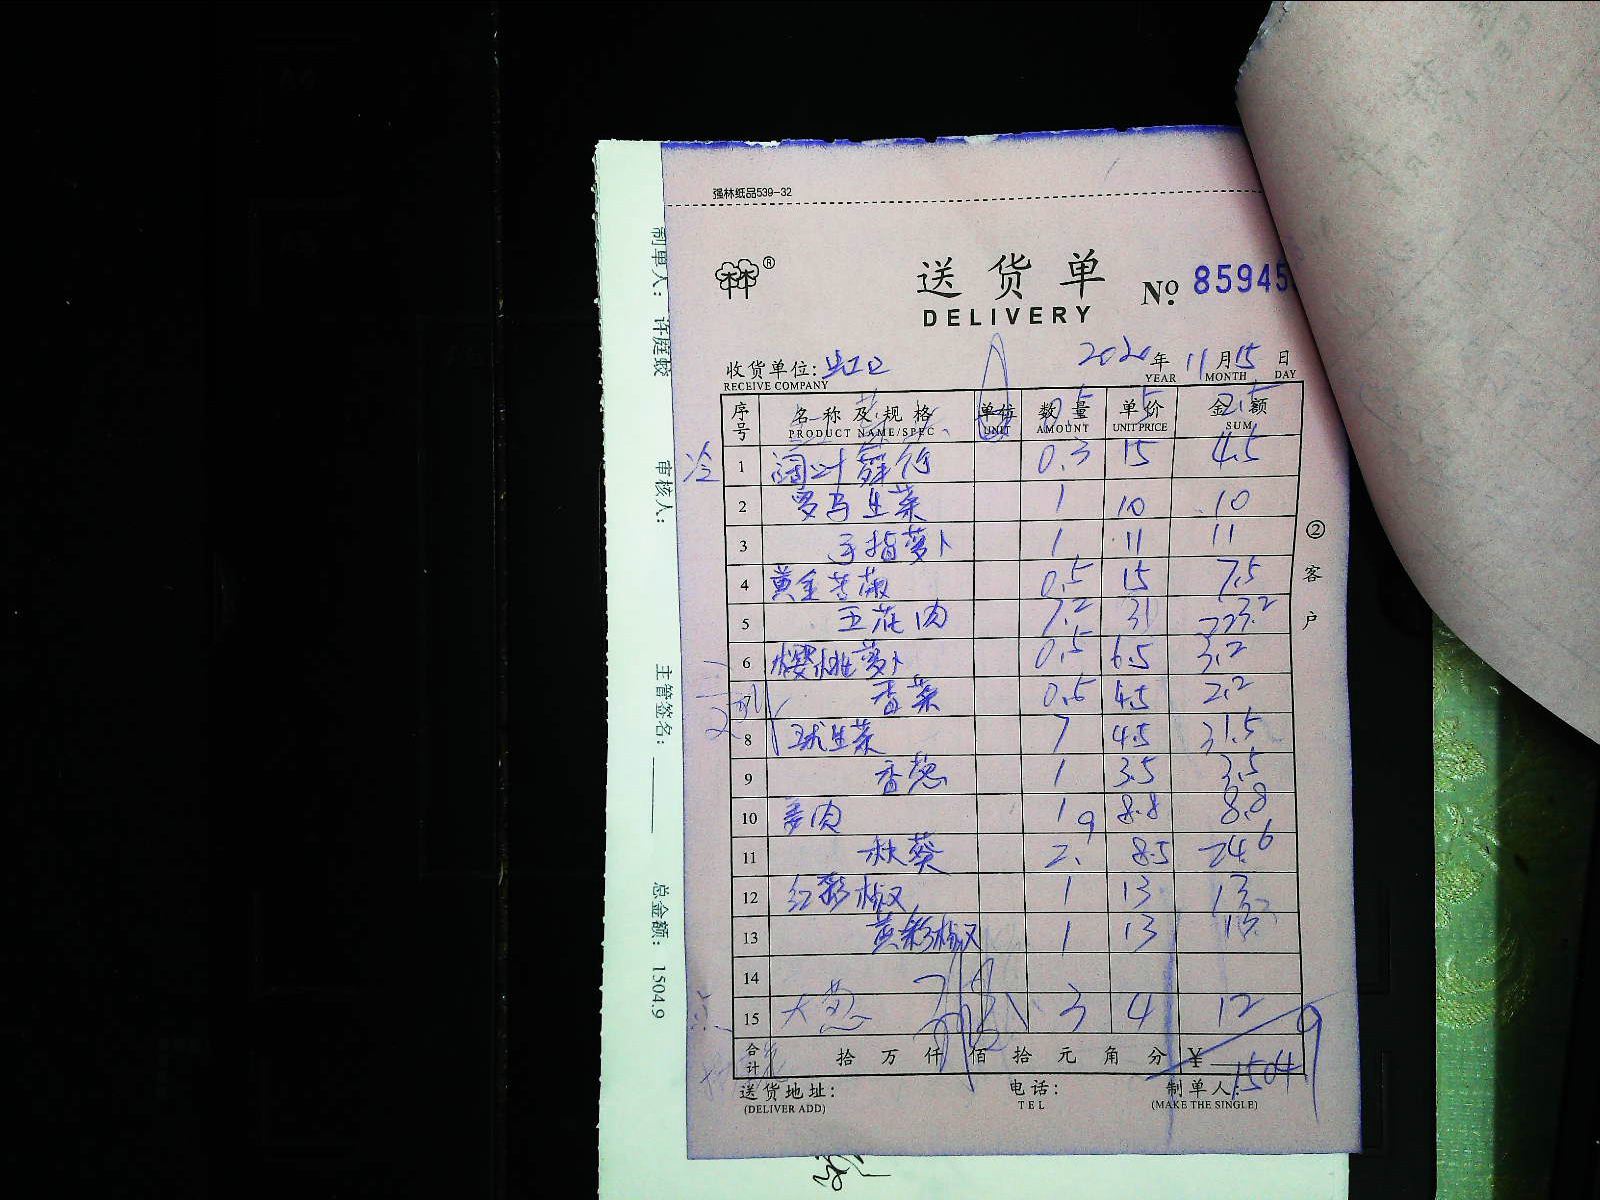 强林纸品539-32
送货单
DELIVERY
№ 85945
收货单位: 出江口
RECEIVE COMPANY
2020 年 11 月 15 日
YEAR MONTH DAY
序号 名称及规格 单位 数量 单价 金额
PRODUCT NAME/SPEC UNIT AMOUNT UNIT PRICE SUM
0.5 5 2.5
冷 1 阔叶 0.3 15 4.5
2 罗马生菜 1 10 10
3 手指萝卜 1 11 11
4 黄金苦菊 0.5 15 7.5
5 五花肉 7.2 31 223.2
6 樱桃萝卜 0.5 6.5 3.2
7 香菜 0.5 4.5 2.2
8 球生菜 7 4.5 31.5
9 香葱 1 3.5 3.5
10 姜肉 1 8.8 8.8
11 秋葵 2.9 8.5 24.6
12 红彩椒 1 13 13
13 黄彩椒 1 13 13
14
15 大葱 3 4 12
合计 拾 万 仟 佰 拾 元 角 分 ¥ 1504.9
送货地址: 电话: 制单人:
(DELIVER ADD) TEL (MAKE THE SINGLE)
② 客户
制单人: 许庭蛟 审核人: 主管签名: 总金额: 1504.9